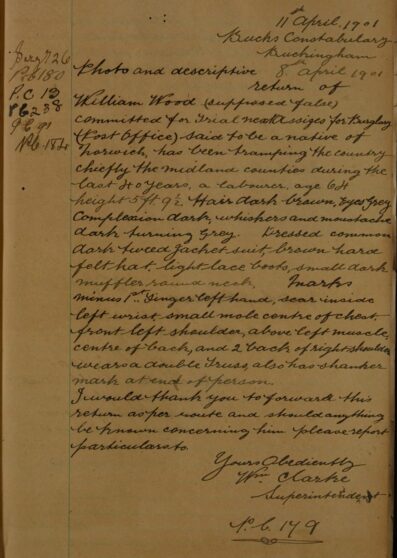 11th April, 1901
Bucks Constabulary
Buckingham
8th April 1901
Photo and descriptive
return of
William Wood (supposed false)
committed for Trial next Assizes for Burglary
(Post Office) said to be a native of
Norwich, has been tramping the country
chiefly the midland counties during the
last 40 years, a labourer, age 64
height 5ft 9½ Hair dark brown, Eyes Grey
Complexion dark, whiskers and moustache
dark turning Grey Dressed common
dark tweed Jacket suit, brown hard
felt hat, light lace boots, small dark
muffler round neck, Marks
minus 1st Finger left hand, scar inside
left wrist, small mole centre of chest
front left shoulder, above left muscle,
centre of back, and 2 back of right shoulder
wears a double Truss, also has shanker
mark at end of person.
I would thank you to forward this
return as per route and should anything
be known concerning him please report
particulars to
Yours Obediently
Wm Clarke
Superintendent
P.C. 179
Serg 726
P.C 180
P.C. 13
P.C. 184